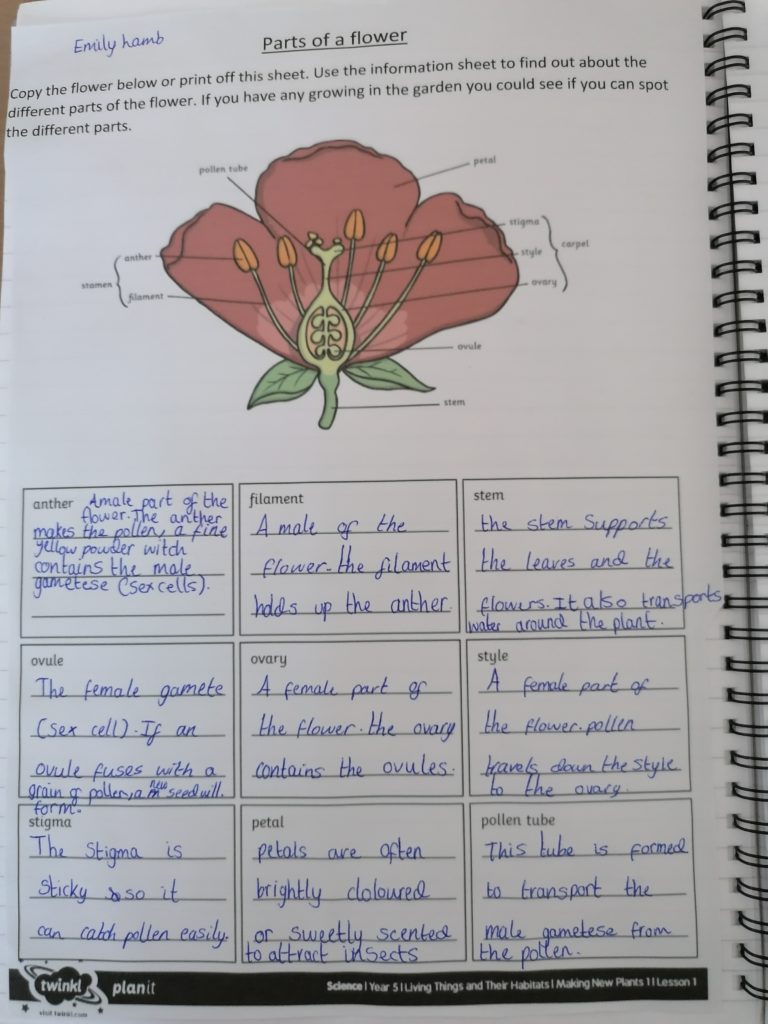 Emily hamb
Parts of a flower
Copy the flower below or print off this sheet. Use the information sheet to find out about the
different parts of the flower. If you have any growing in the garden you could see if you can spot
the different parts.
pollen tube
petal
stigma
anther
style
carpel
stamen
ovary
filament
ovule
stem
anther A male part of the
flower. The anther
makes the pollen, a fine
yellow powder witch
contains the male
gametese (sex cells).
filament
A male of the
flower. the filament
holds up the anther.
stem
the stem supports
the leaves and the
flowers. It also transports
water around the plant.
ovule
The female gamete
(sex cell). If an
ovule fuses with a
grain of pollen, a new seed will
form.
ovary
A female part of
the flower. the ovary
contains the ovules.
style
A female part of
the flower. pollen
travels down the style
to the ovary.
stigma
The stigma is
sticky so it
can catch pollen easily.
petal
petals are often
brightly cloloured
or sweetly scented
to attract insects
pollen tube
This tube is formed
to transport the
male gametese from
the pollen.
twinkl planit
Science | Year 5 | Living Things and Their Habitats | Making New Plants 1 | Lesson 1
visit twinkl.com